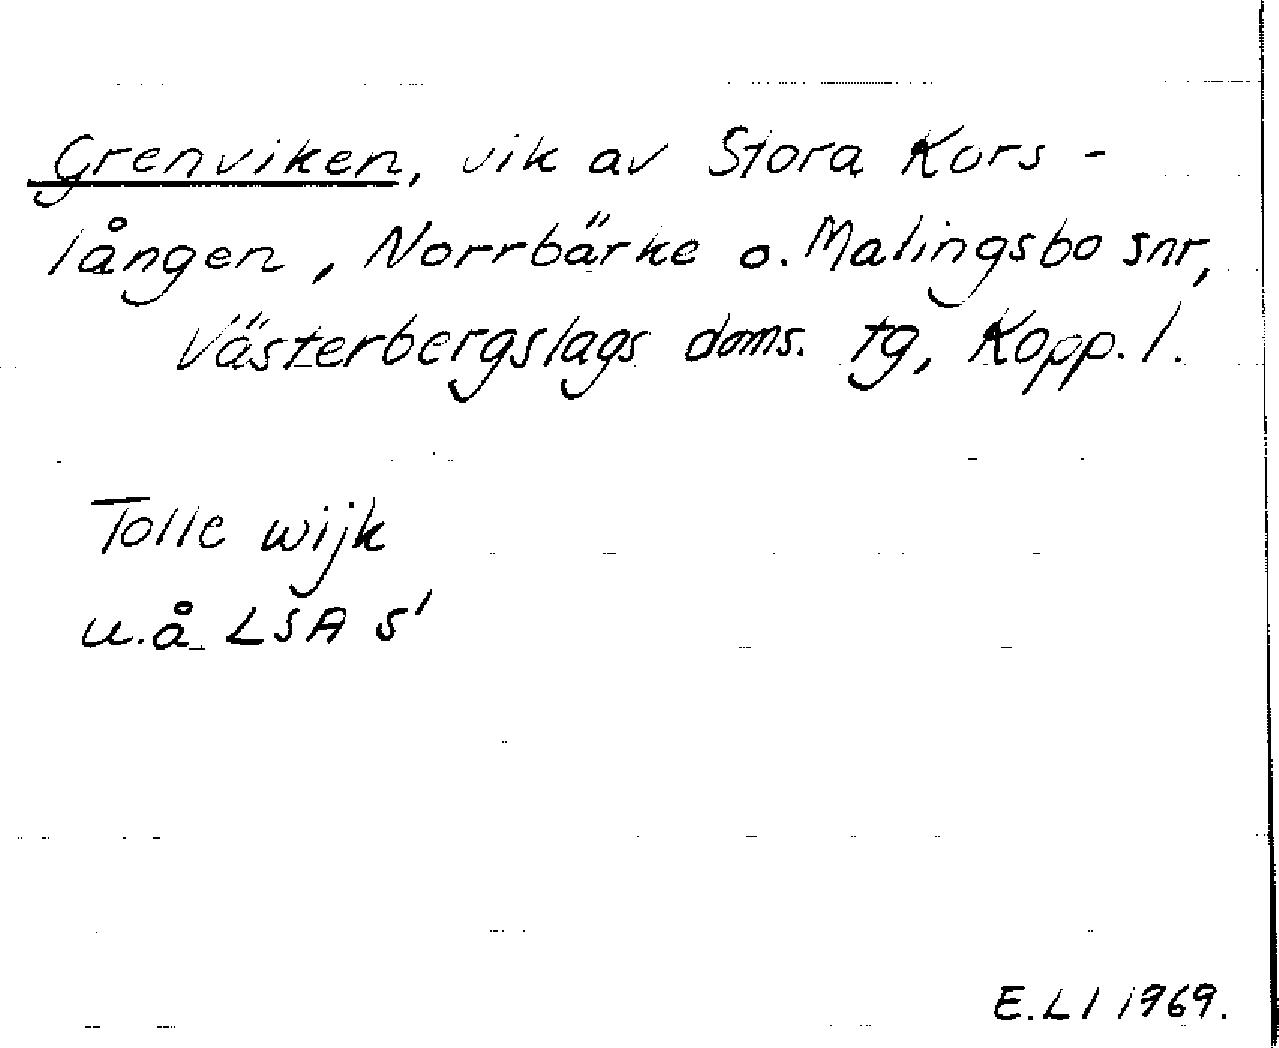 Grenviken, vik av Stora Kors-
lången, Norrbärke o. Malingsbo snr,
Västerbergslags doms. tg, Kopp. l.
Tolle wijk
u.å LSA S'
E.Ll 1969.